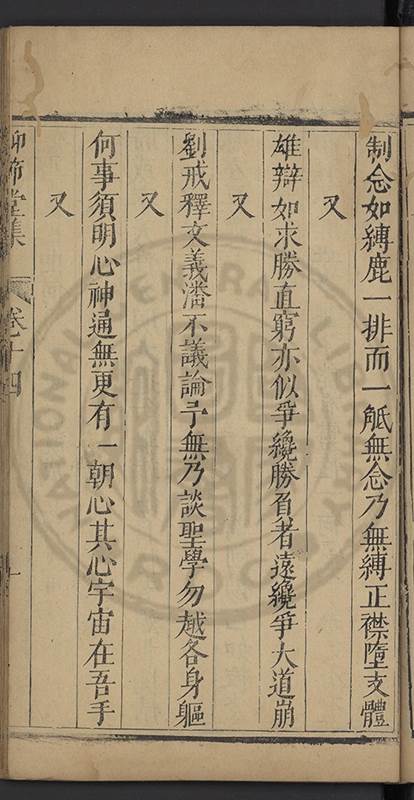 制念如縛鹿一排而一觝無念乃無縛正襟墮支體
又
雄辯如求勝直窮亦似爭纔勝負者遠纔爭大道崩
又
劉戒釋文義潘不議論予無乃談聖學勿越各身軀
又
何事須明心神通無更有一朝心其心宇宙在吾手
又
仰節堂集 卷十四